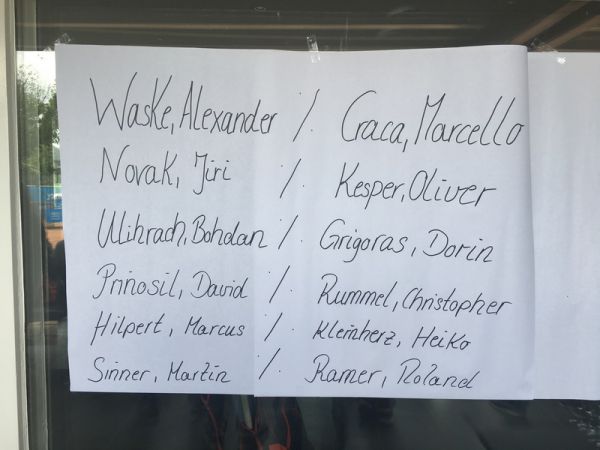 Waske, Alexander /. Craca, Marcello
Novak, Jiri /. Kesper, Oliver
Ulihrach, Bohdan /. Grigoras, Dorin
Prinosil, David /. Rummel, Christopher
Hilpert, Marcus /. Kleinherz, Heiko
Sinner, Martin /. Ramer, Roland